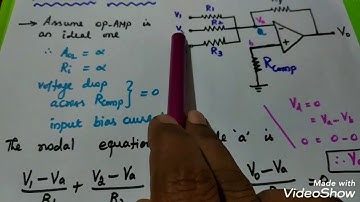 → Assume op-Amp is
an ideal one
∴ Aα = α
Ri = α
voltage drop
across Rcomp
= 0
input bias curr
V1 R1
R2
R3
Va
a
b
Vo
Rcomp
Vd = 0
= Va - Vb
0 = 0-0
The nodal equation
'a' is
V1-Va + V2-Va
Vo-Va
Made with
VideoShow